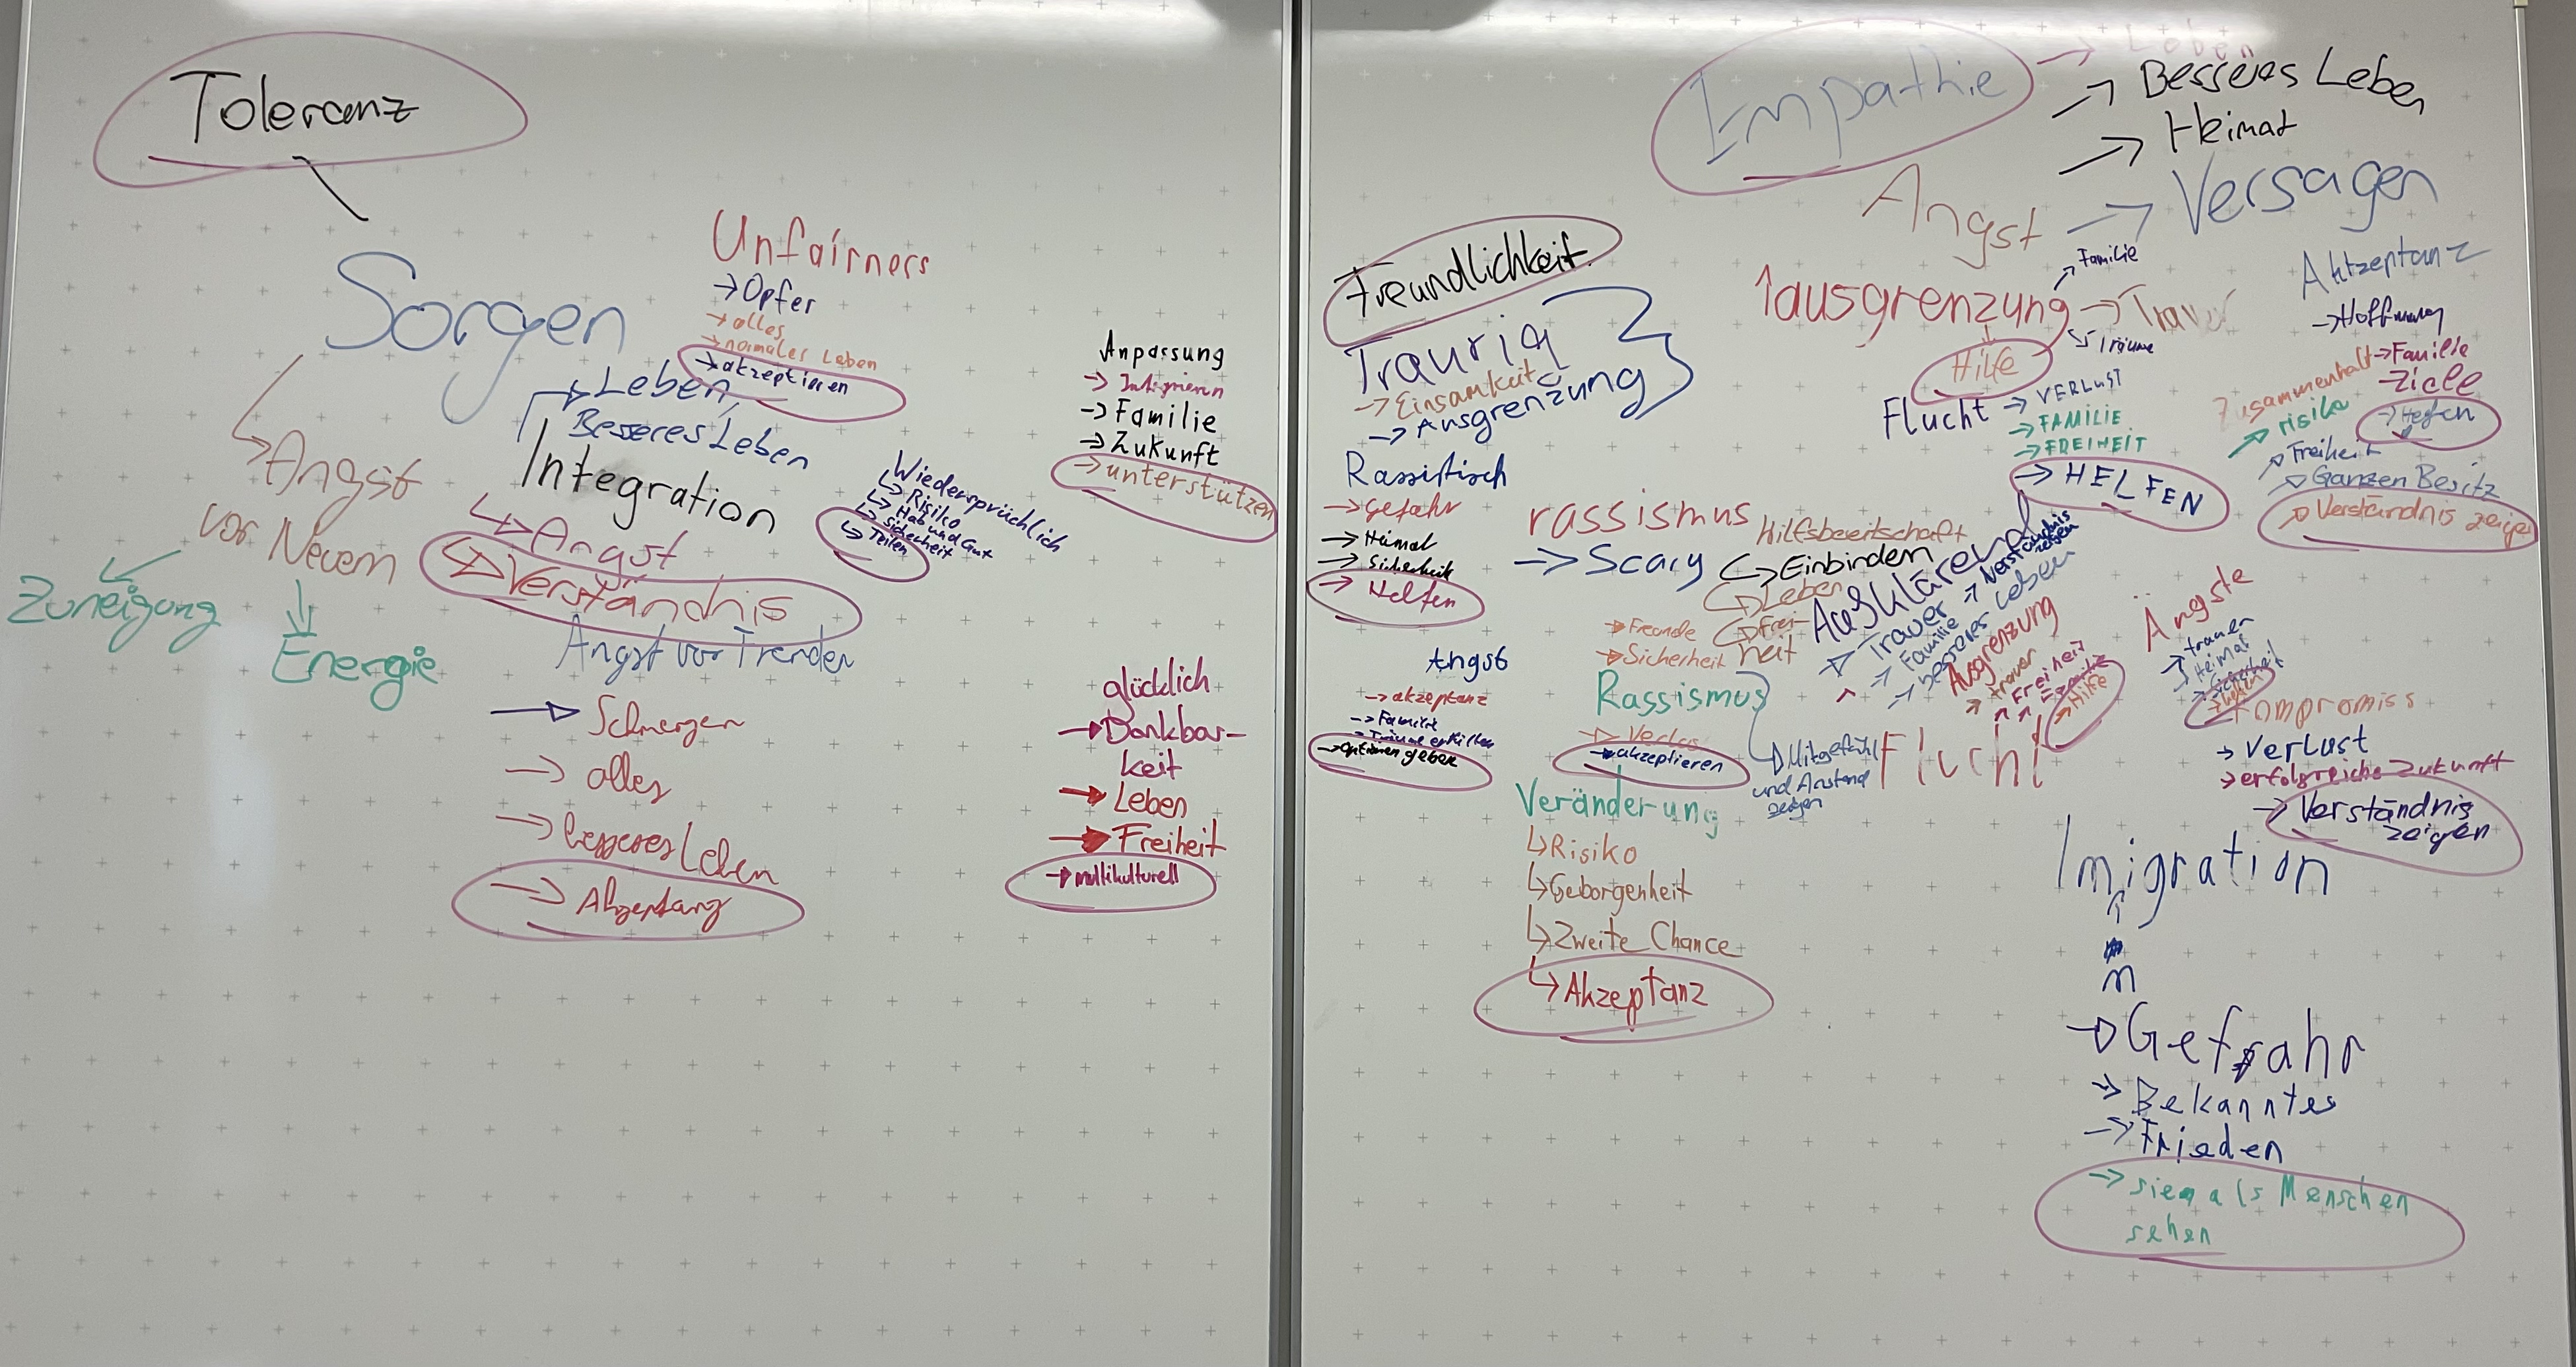 Toleranz
Sorgen
Angst
vor Neuem
Zuneigung
Energie
Unfairners
→ Opfer
→ alles
→ normales Leben
→ akzeptieren
→ Leben
Besseres Leben
Integration
→ Angst
→ Verständnis
Wiedersprüchlich
↳ Risiko
↳ Hab und Gut
↳ Sicherheit
↳ Teilen
Angst vor Fremden
→ Schmerzen
→ alles
→ besseres Leben
→ Akzeptanz
Anpassung
→ Integrieren
→ Familie
→ Zukunft
→ unterstützen
glücklich
→ Dankbar-
keit
→ Leben
→ Freiheit
→ multikulturell
Freundlichkeit
Traurig
→ Einsamkeit
→ Ausgrenzung
Rassistisch
→ Gefahr
→ Heimat
→ Sicherheit
→ Helfen
Angst
→ akzeptanz
→ Familie
→ Träume erfüllen
→ Optionen geben
rassismus
→ Scary
→ Freunde
→ Sicherheit
Rassismus
→ akzeptieren
→ Mitgefühl
und Anstand
zeigen
Veränderung
↳ Risiko
↳ Geborgenheit
↳ Zweite Chance
↳ Akzeptanz
Hilfsbereitschaft
→ Einbinden
→ Leben
→ Frei-
heit
Empathie
→ Leben
→ Besseres Leben
→ Heimat
Angst
→ Versagen
↑ausgrenzung
→ Familie
→ Trauer
→ Träume
Hilfe
Flucht
→ VERLUST
→ FAMILIE
→ FREIHEIT
→ HELFEN
Aufklärend
→ Trauer
→ Familie
→ besseres Leben
→ Verständnis
zeigen
Ausgrenzung
→ trauer
→ Freiheit
→ Hilfe
Flucht
Aktzeptanz
→ Hoffnung
→ Familie
→ Ziele
→ Helfen
Zusammenhalt
→ risiko
→ Freiheit
→ Ganzen Besitz
→ Verständnis zeigen
Ängste
→ trauer
→ Heimat
→ Sicherheit
→ helfen
Kompromiss
→ Verlust
→ erfolgreiche Zukunft
→ Verständnis
zeigen
Imigration
m
→ Gefahr
→ Bekanntes
→ Frieden
→ sie als Menschen
sehen